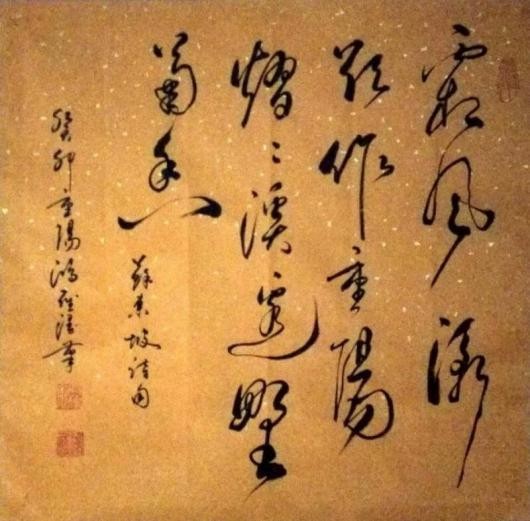 霜風漸
欲作重陽
熠〻溪邊野
菊香
蘇東坡詩句
癸卯重陽